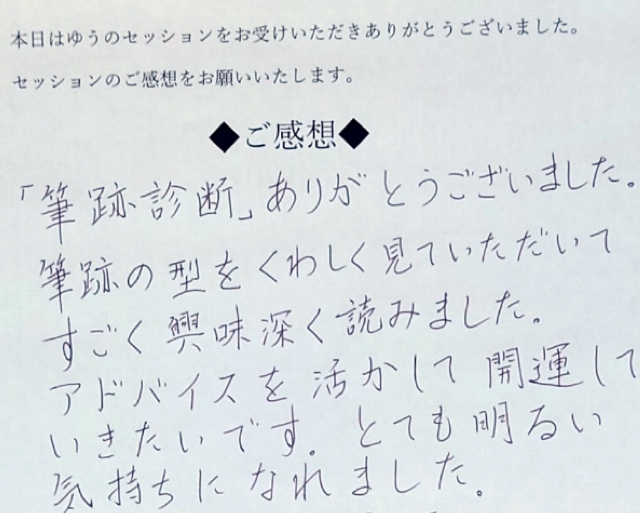 本日はゆうのセッションをお受けいただきありがとうございました。
セッションのご感想をお願いいたします。
◆ご感想◆
「筆跡診断」ありがとうございました。
筆跡の型をくわしく見ていただいて
すごく興味深く読みました。
アドバイスを活かして開運して
いきたいです。とても明るい
気持ちになれました。